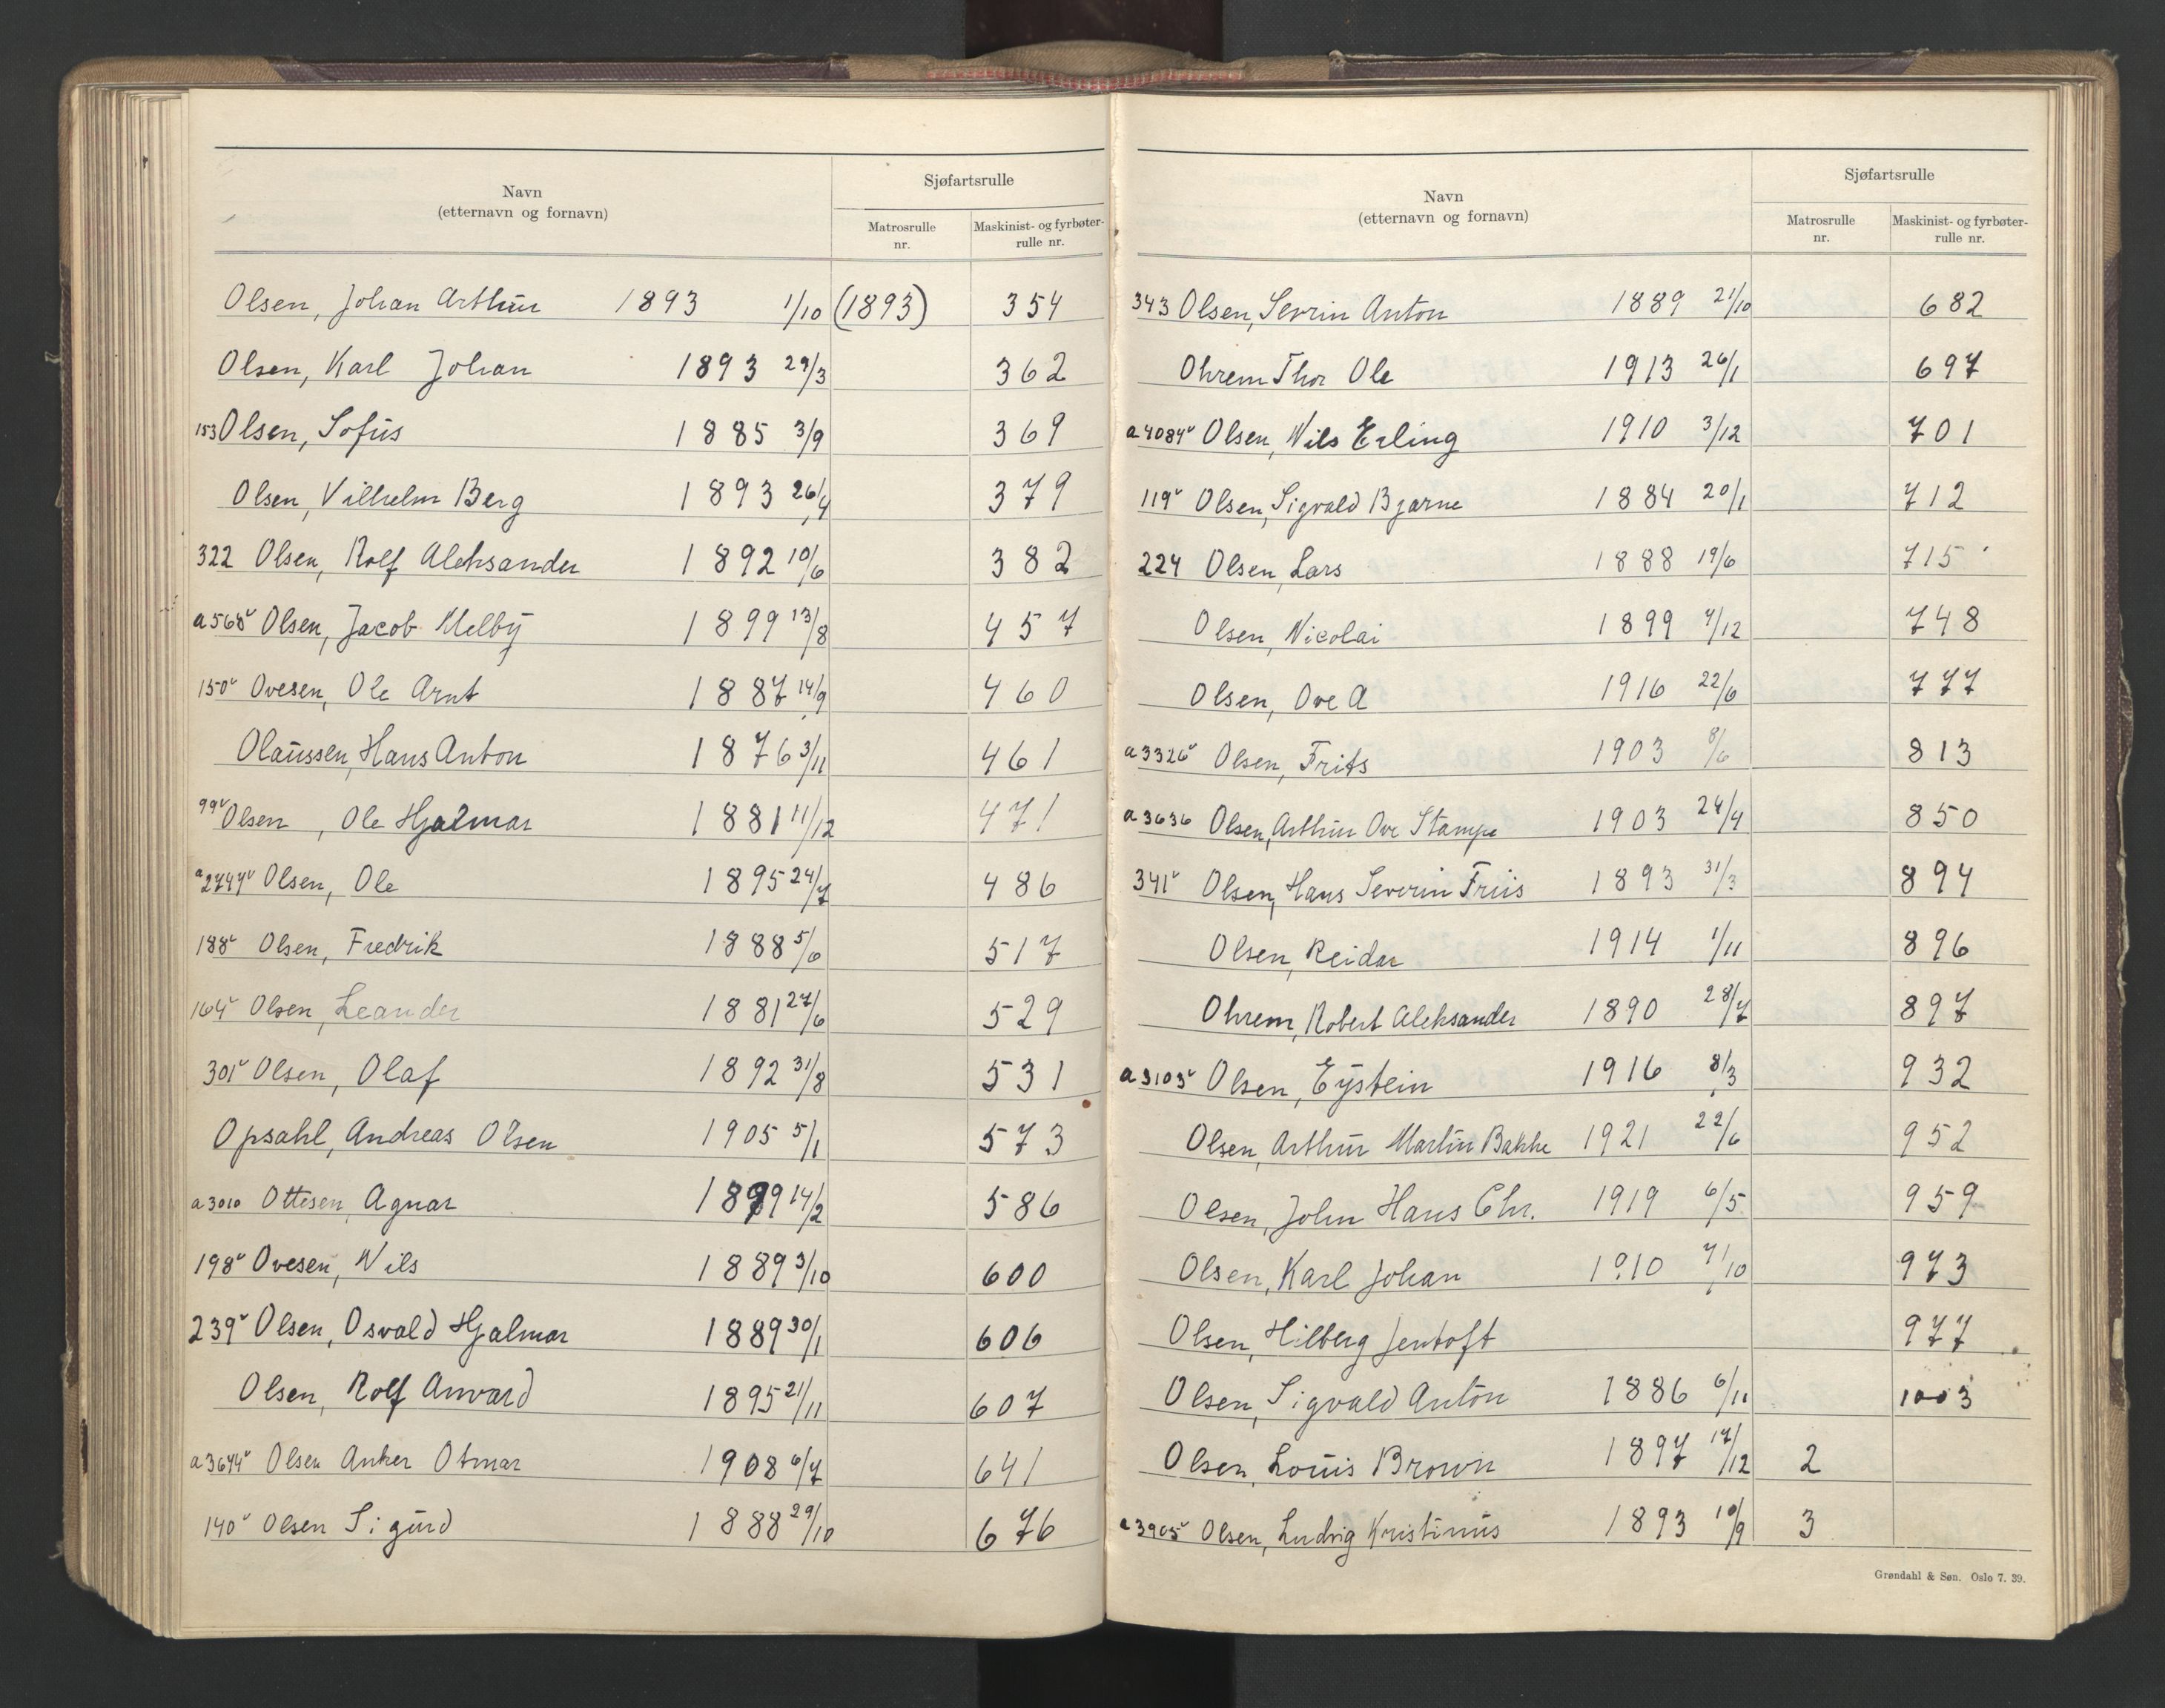 Navn
(etternavn og fornavn)
Sjøfartsrulle
Matrosrulle nr.
Maskinist- og fyrbøter-rulle nr.
Olsen, Johan Arthur 1893 1/10 (1893) 354
Olsen, Karl Johan 1893 29/3 362
153 Olsen, Sofus 1885 3/9 369
Olsen, Vilhelm Berg 1893 26/4 379
322 Olsen, Rolf Aleksander 1892 10/6 382
a568v Olsen, Jacob Melby 1899 13/8 457
150v Ovesen, Ole Arnt 1887 14/9 460
Olaussen, Hans Anton 1876 3/11 461
99v Olsen, Ole Hjalmar 1881 11/12 471
a2747v Olsen, Ole 1895 24/7 486
188v Olsen, Fredrik 1888 5/6 517
164v Olsen, Leander 1881 27/6 529
301v Olsen, Olaf 1892 31/8 531
Opsahl, Andreas Olsen 1905 5/1 573
a3010 Ottesen, Agnar 1899 14/2 586
198v Ovesen, Nils 1889 3/10 600
239v Olsen, Osvald Hjalmar 1889 30/1 606
Olsen, Rolf Anvard 1895 21/11 607
a3644v Olsen Anker Otmar 1908 6/7 641
140v Olsen Sigurd 1888 29/10 676
Navn
(etternavn og fornavn)
Sjøfartsrulle
Matrosrulle nr.
Maskinist- og fyrbøter-rulle nr.
343 Olsen, Sevrin Anton 1889 21/10 682
Ohrem Thor Ole 1913 26/1 697
a4084v Olsen, Nils Erling 1910 3/12 701
119v Olsen, Sigvald Bjarne 1884 20/1 712
224 Olsen, Lars 1888 19/6 715
Olsen, Nicolai 1899 7/12 748
Olsen, Ove A 1916 22/6 777
a3326v Olsen, Frits 1903 8/6 813
a3636 Olsen, Arthur Ove Stampe 1903 24/4 850
341v Olsen, Hans Severin Friis 1893 31/3 894
Olsen, Reidar 1914 1/11 896
Ohrem, Robert Aleksander 1890 28/7 897
a3103v Olsen, Eystein 1916 8/3 932
Olsen, Arthur Martin Bakke 1921 22/6 952
Olsen, John Hans Chr. 1919 6/5 959
Olsen, Karl Johan 1910 7/10 973
Olsen, Hilberg Jentoft 977
Olsen, Sigvald Anton 1886 6/11 1003
Olsen, Louis Brown 1897 17/12 2
a3905v Olsen, Ludvig Kristinus 1893 10/9 3
Grøndahl & Søn. Oslo 7. 39.